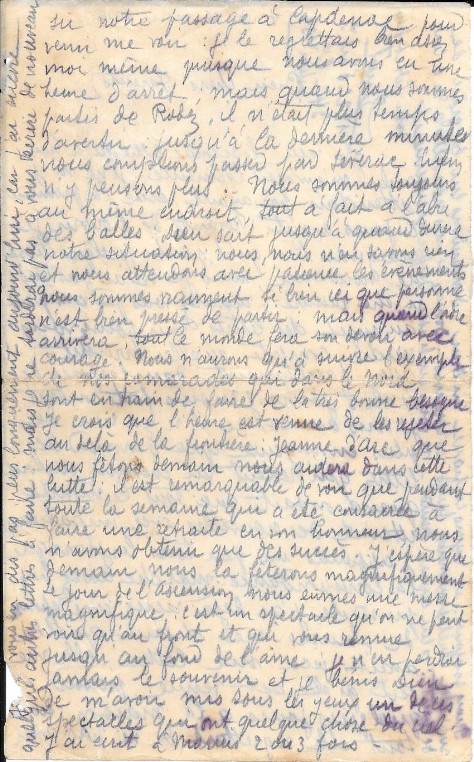 su notre passage à Capdenac pour
venir me voir. Je le regrettais bien assez
moi même puisque nous avons eu une
heure d'arrêt mais quand nous sommes
partis de Rodez, il n'était plus temps
d'avertir : jusqu'à la dernière minute
nous comptions passer par Séverac.
n'y pensons plus. Nous sommes toujours
au même endroit, tout à fait à l'abri
des balles Dieu sait jusqu'à quand durera
notre situation nous, nous n'en savons rien
et nous attendons avec patience les évènements
nous sommes vraiment si bien ici que personne
n'est bien pressé de partir ; mais quand l'ordre
arrivera, tout le monde fera son devoir avec
courage. Nous n'aurons qu'à suivre l'exemple
de nos camarades qui dans le Nord,
sont en train de faire de la très bonne besogne
Je crois que l'heure est venue de les rejeter
au delà de la frontière : Jeanne d'Arc que
nous fêtons demain nous aidera dans cette
lutte : il est remarquable de voir que pendant
toute la semaine qui a été consacrée à
faire une retraite en son honneur nous
n'avons obtenu que des succès. J'espère que
demain nous la fêterons magnifiquement
le jour de l'Ascension nous eûmes une messe
magnifique : c'est un spectacle qu'on ne peut
voir qu'au front et qui vous remue
jusqu'au fond de l'âme je n'en perdrai
jamais le souvenir et je bénis Dieu
de m'avoir mis sous les yeux un de ces
spectacles qui ont quelque chose du ciel
J'ai écrit à 2 ou 3 fois -
vous en dis pas plus longuement aujourd'hui, car j'ai encore
quelques autres lettres à faire mais je ne tarderai pas à vous de nouveau